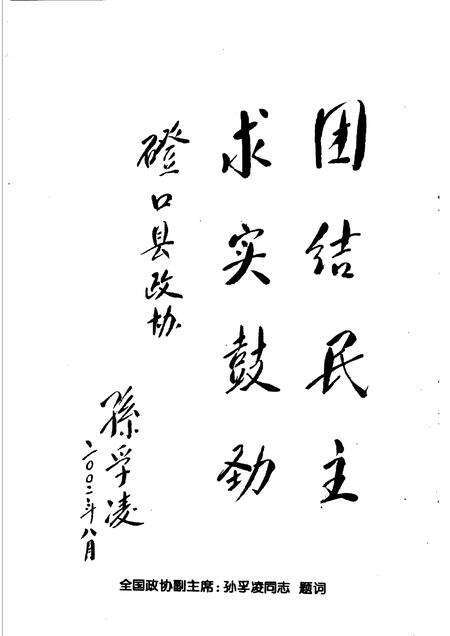 团结民主
求实鼓劲
磴口县政协
孫孚凌
二〇〇二年八月
全国政协副主席：孙孚凌同志 题词